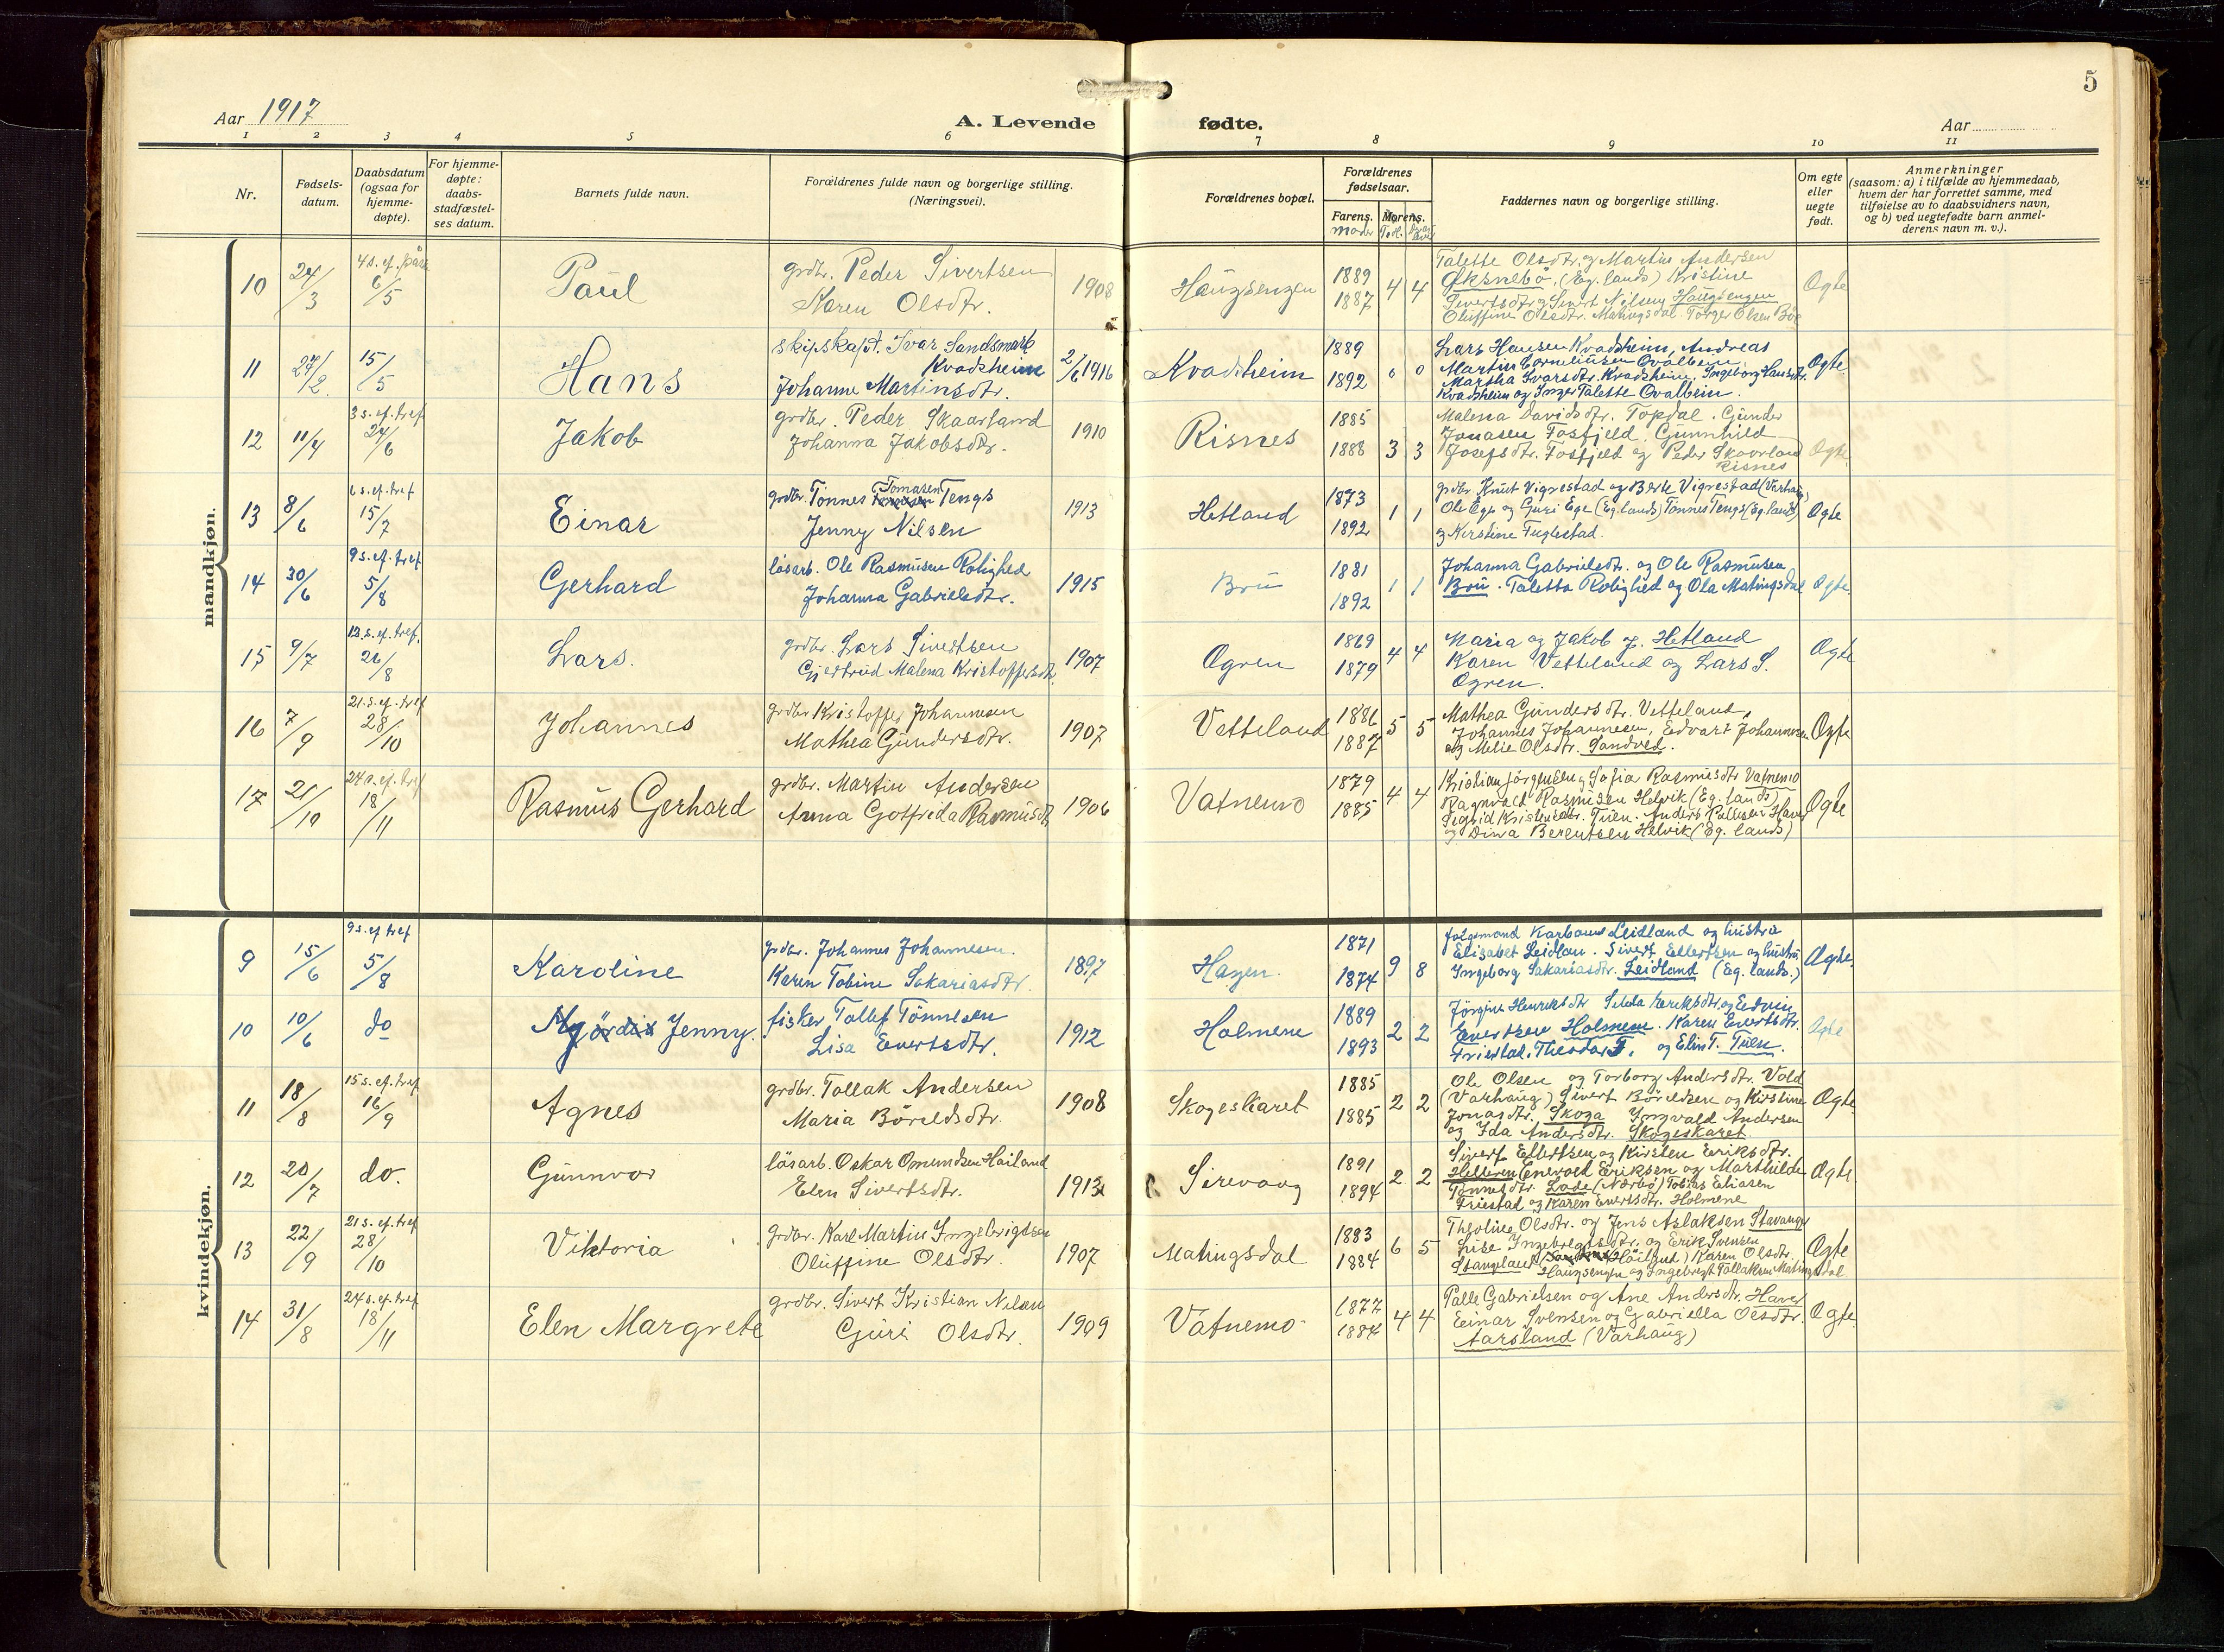 5
Aar 1917
A. Levende fødte.
Aar
1 2 3 4 5 6 7 8 9 10 11
Nr.
Fødsels-
datum.
Daabsdatum
(ogsaa for
hjemme-
døpte).
For hjemme-
døpte:
daabs-
stadfæstel-
ses datum.
Barnets fulde navn.
Forældrenes fulde navn og borgerlige stilling.
(Næringsvei).
Forældrenes bopæl.
Forældrenes
fødselsaar.
Farens. Morens.
Faddernes navn og borgerlige stilling.
Om egte
eller
uegte
født.
Anmerkninger
(saasom: a) i tilfælde av hjemmedaab,
hvem der har forrettet samme, med
tilføielse av to daabsvidners navn,
og b) ved uegtefødte barn anmel-
derens navn m. v.).
mandkjøn.
10 24/3 4 s. ef. påsk 6/5 Paul
grdbr. Peder Sivertsen
Karen Olsdtr. 1908
Haugsengen 1889 1887 4 4
Talette Olsdtr. og Martin Andersen
Øksnebö, (Eg. lands) Kristine
Sivertsdtr og Sivert Nilsen, Haugsengen
Oluffine Olsdtr. Matingsdal. Torger Olsen Bö
Ægte
11 27/2. 15/5 Hans
skipskapt. Ivar Sandsmark
Kvadsheim
Johanne Martinsdtr. 2/6 1916
Kvadsheim 1889 1892 0 0
Lars Hansen Kvadsheim, Andreas
Martin Corneliusen Ovalbein
Martha Ivarsdtr. Kvadsheim, Ingeborg Hansdtr.
Kvadsheim og Inger Talette Ovalbein.
Ægte
12 11/4 3 s. ef. tref 24/6 Jakob
grdbr. Peder Skaarland
Johanna Jakobsdtr. 1910
Risnes 1885 1888 3 3
Malena Davidsdtr. Topdal. Gunder
Jonasen Fosfjeld, Gunnhild
Josefsdtr. Fosfjeld og Peder Skaarland
Risnes
Ægte
13 8/6 6 s. ef. tref 15/7 Einar
grdbr. Tönnes Tomasen Tengs
Jenny Nilsen 1913
Hetland 1873 1892 1 1
grdbr Knut Vigrestad og Berte Vigrestad (Varhaug)
Ole Ege og Guri Ege (Eg. lands) Tönnes Tengs (Eg. lands)
og Kirstine Fuglestad.
Ægte
14 30/6 9 s. ef. tref 5/8 Gerhard
lösarb. Ole Rasmusen Rolighed
Johanna Gabrielsdtr. 1915
Bru 1881 1892 1 1
Johanna Gabrielsdtr. og Ole Rasmusen
Bru. Taletta Rolighed og Ola Matingsdal
Ægte.
15 9/7 12. s. ef. tref. 26/8 Lars.
grdbr. Lars Sivertsen
Gjertrud Malena Kristoffersdtr. 1907
Ogren 1869 1879 4 4
Maria og Jakob J. Hetland
Karen Vetteland og Lars S.
Ogren.
Ægte
16 7/9 21. s. ef. tref 28/10 Johannes
grdbr Kristoffer Johannesen
Mathea Gundersdtr. 1907
Vetteland 1886 1887 5 5
Mathea Gundersdtr. Vetteland,
Johannes Johannesen, Edvart Johannesen
og Melie Olsdtr. Sandved.
Ægte
17 21/10 24 s. ef. tref 18/11 Rasmus Gerhard
grdbr. Martin Andersen
Anna Gotfrida Rasmusdtr. 1906
Vatnemo 1879 1885 4 4
Kristian Jörgensen og Sofia Rasmusdtr Vatnemo
Ragnvald Rasmusen Helvik (Eg. lands)
Sigrid Kristensdtr. Tuen. Anders Pallesen Haver
og Dina Berentsen Helvik (Eg. lands)
Ægte
kvindekjøn.
9 15/6 9 s. ef tref 5/8 Karoline
grdbr. Johannes Johannesen.
Karen Tobine Sakariasdtr. 1897
Hagen. 1871 1874 9 8
Leidland og hustru
Elisabet Leidlan. Sivert Ellertsen og hustru
Ingeborg Sakariasdtr. Leidland (Eg. lands.)
Ægte.
10 10/6 do Jenny.
fisker Tollef Tönnesen
Lisa Evertsdtr. 1912
Holmene 1889 1893 2 2
Jörgine Henriksdtr Silda Eriksdtr. og Edvin
Evertsen Holmene. Karen Evertsdtr.
Friestad. Theodor T. og Elin T. Tuen.
Ægte
11 18/8 15 s. ef. tref 16/9 Agnes
grdbr. Tollak Andersen
Maria Böreldsdtr. 1908
Skogeskaret 1885 1885 2 2
Ole Olsen og Torborg Andersdtr. Vold
(Varhaug) Sivert Böreldsen og Kirstine
Jonasdtr. Skoga Yngvald Andersen
og Ida Andersdtr. Skogeskaret.
Ægte
12 20/7 do. Gunnvor
lösarb. Oskar Omundsen Hailand
Elen Sivertsdtr. 1913
Sirevaag 1891 1894 2 2
Sivert Ellertsen og Kirsten Eriksdtr.
Helleren Enevald Eriksen og Marthilde
Tönnesdtr. Lode (Nærbö) Tobias Eliasen
Friestad og Karen Evertsdtr. Holmene
Ægte
13 22/9 21 s. ef. tref 28/10 Viktoria
grdbr. Karl Martin Ingebrigtsen
Oluffine Olsdtr. 1907
Matingsdal 1883 1884 6 5
Theoline Olsdtr. og Jens Aslaksen Stavanger
Lise Ingebregtsdtr. og Erik Svensen
Stangeland Karen Olsdtr.
Haugsengen og Ingebregt Tollaksen Matingsdal
Ægte
14 31/8 24 s. ef. tref 18/11 Elen Margrete
grdbr. Sivert Kristian Nilsen
Guri Olsdtr. 1909
Vatnemo 1877 1884 4 4
Palle Gabrielsen og Ane Andersdtr. Haver
Einar Svensen og Gabriella Olsdtr.
Aarsland (Varhaug)
Ægte.